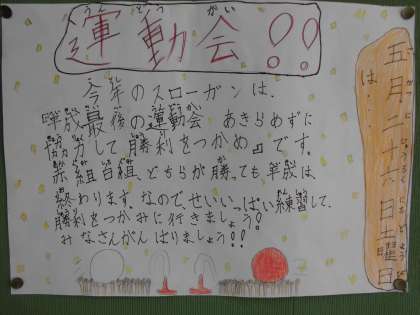 運動会!!
うん どう かい
今年のスローガンは、
『平成最後の運動会 あきらめずに
協力して勝利をつかめ』です。
赤組白組、どちらが勝っても平成は
終わります。なのでせいいっぱい練習して、
勝利をつかみに行きましょう!
みなさんがんばりましょう!!
五月二十六日土曜日
は…